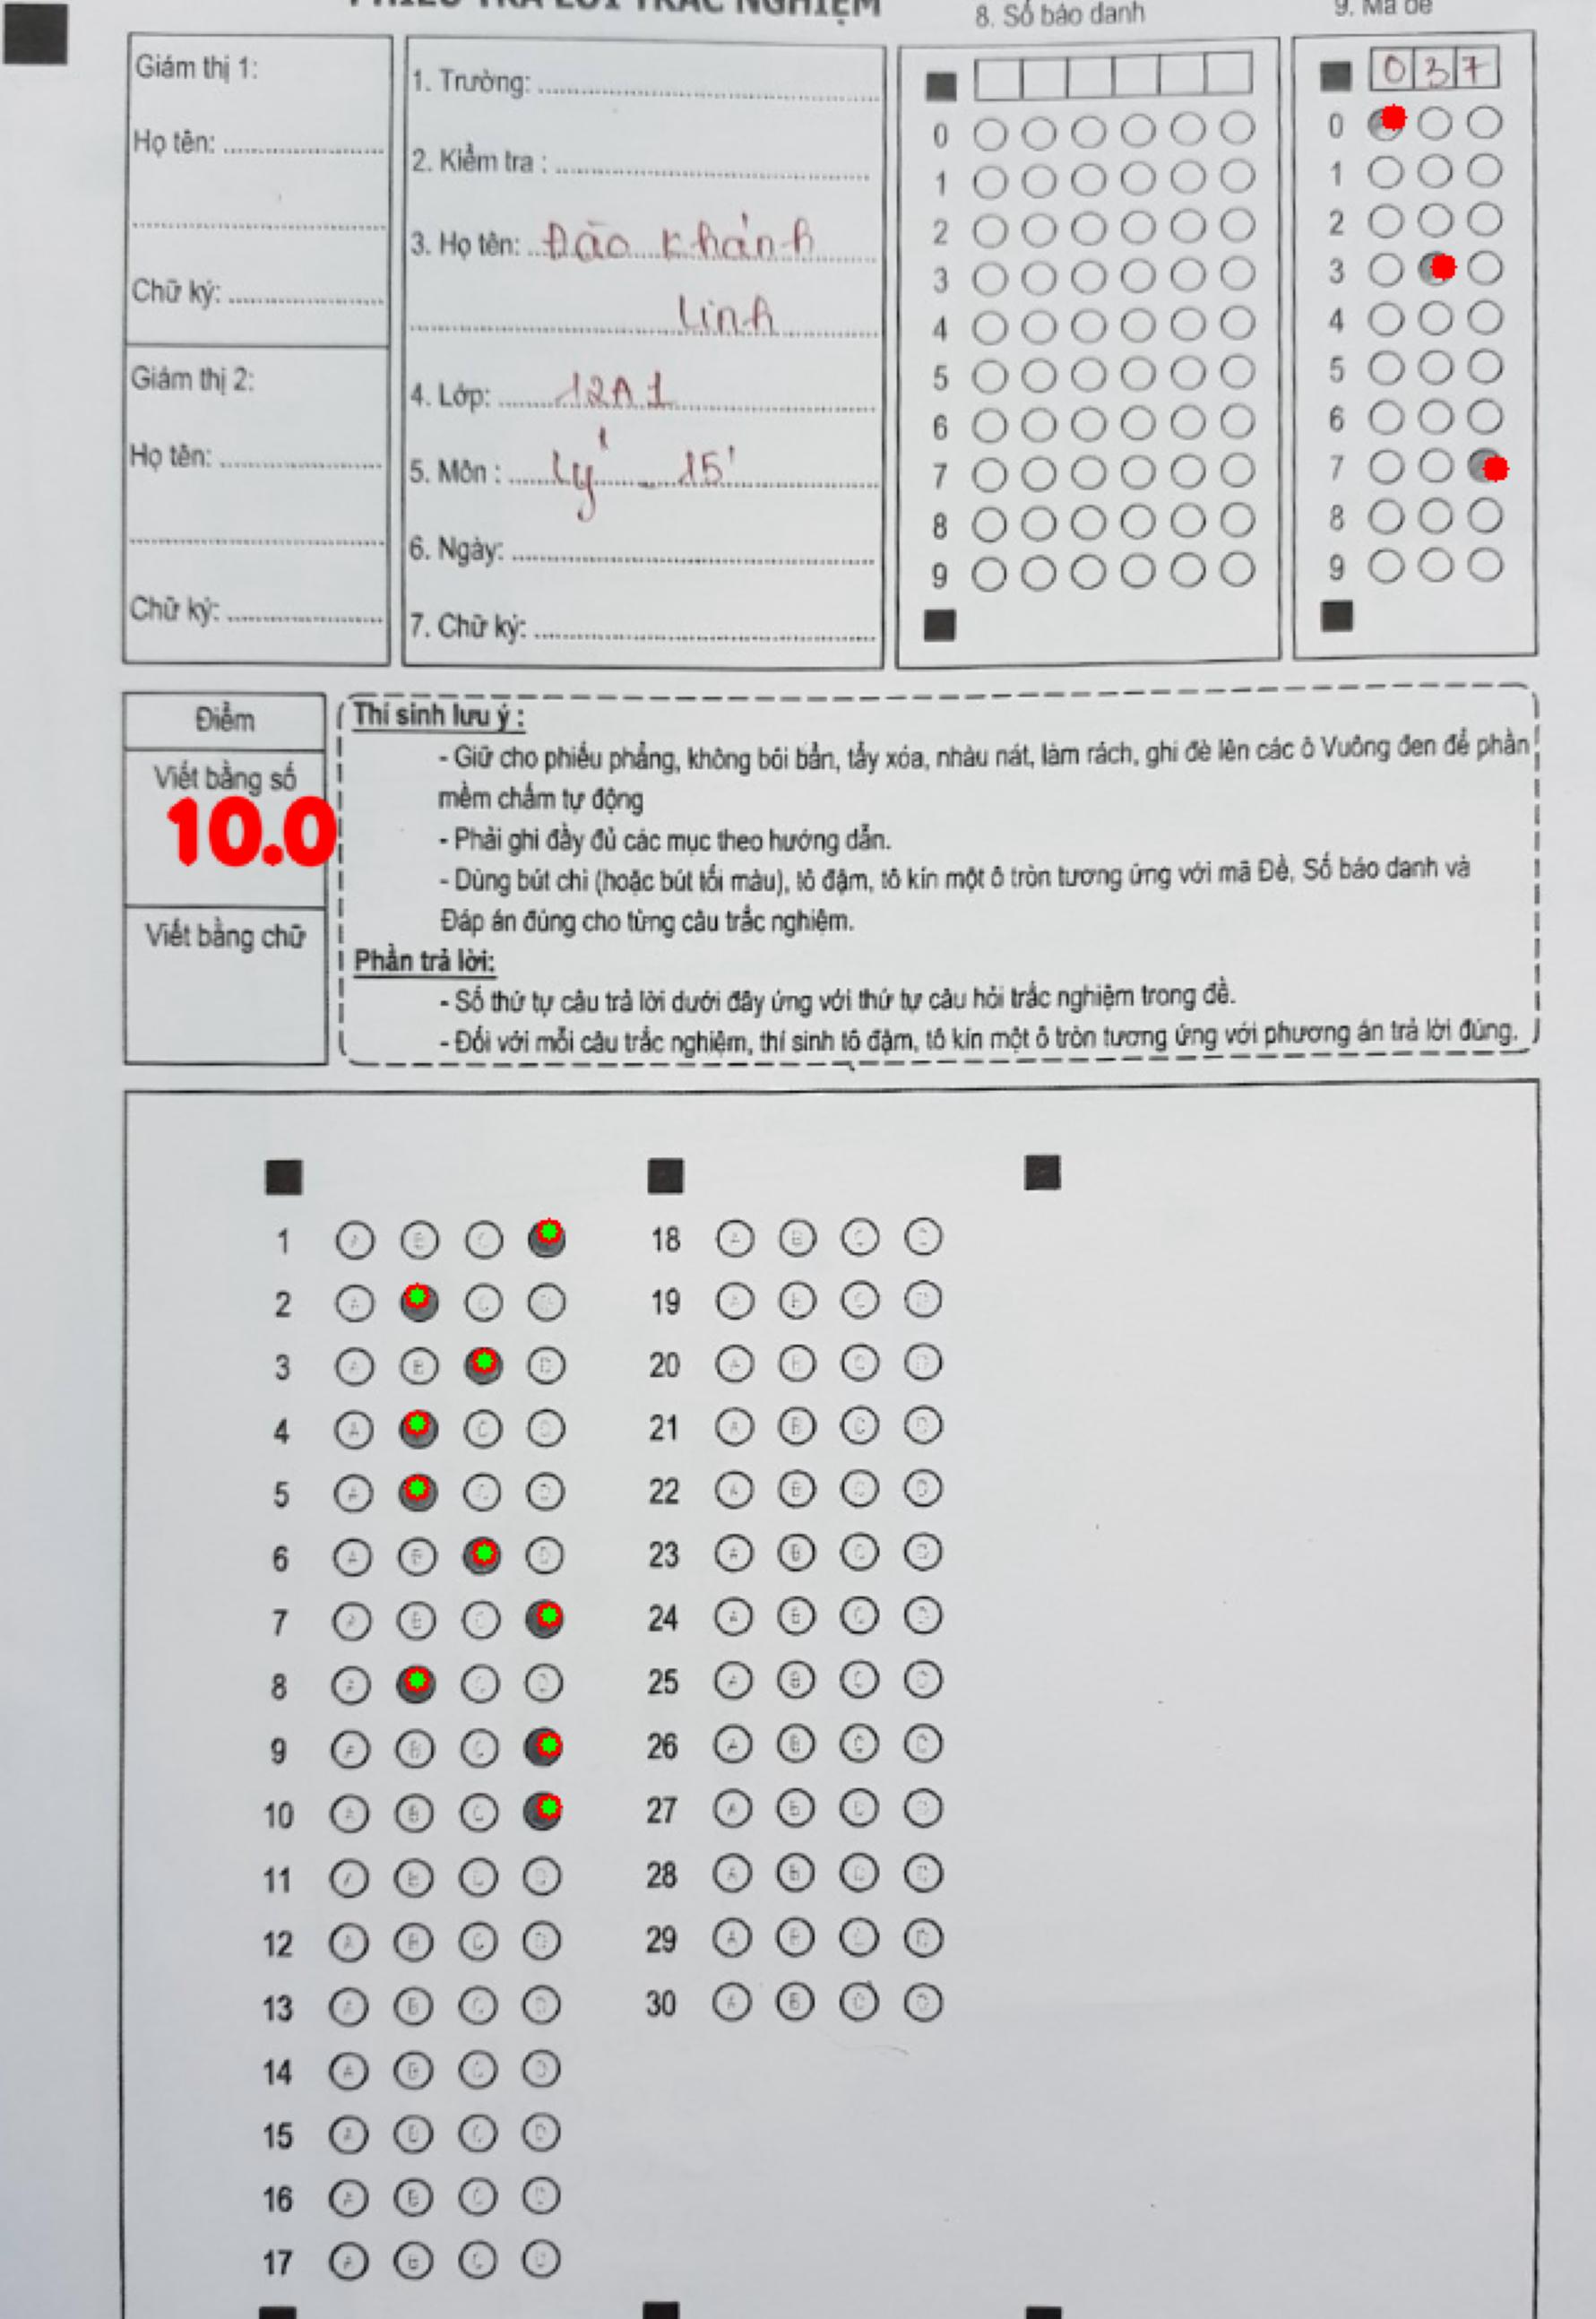 PHIẾU TRẢ LỜI TRẮC NGHIỆM
8. Số báo danh
9. Mã Đề
Giám thị 1:
Họ tên:
Chữ ký:
Giám thị 2:
Họ tên:
Chữ ký:
1. Trường:
2. Kiểm tra :
3. Họ tên: Đào Khánh
Linh
4. Lớp: 12A1
5. Môn : Lý - 15'
6. Ngày:
7. Chữ ký:
0
1
2
3
4
5
6
7
8
9
0 3 7
0
1
2
3
4
5
6
7
8
9
Điểm
Viết bằng số
10.0
Viết bằng chữ
Thí sinh lưu ý :
- Giữ cho phiếu phẳng, không bôi bẩn, tẩy xóa, nhàu nát, làm rách, ghi đè lên các ô Vuông đen để phần
mềm chấm tự động
- Phải ghi đầy đủ các mục theo hướng dẫn.
- Dùng bút chì (hoặc bút tối màu), tô đậm, tô kín một ô tròn tương ứng với mã Đề, Số báo danh và
Đáp án đúng cho từng câu trắc nghiệm.
Phần trả lời:
- Số thứ tự câu trả lời dưới đây ứng với thứ tự câu hỏi trắc nghiệm trong đề.
- Đối với mỗi câu trắc nghiệm, thí sinh tô đậm, tô kín một ô tròn tương ứng với phương án trả lời đúng.
1 A B C
2 A C D
3 A B D
4 A C D
5 A C D
6 A B D
7 A B C
8 A C D
9 A B C
10 A B C
11 A B C D
12 A B C D
13 A B C D
14 A B C D
15 A B C D
16 A B C D
17 A B C D
18 A B C D
19 A B C D
20 A B C D
21 A B C D
22 A B C D
23 A B C D
24 A B C D
25 A B C D
26 A B C D
27 A B C D
28 A B C D
29 A B C D
30 A B C D